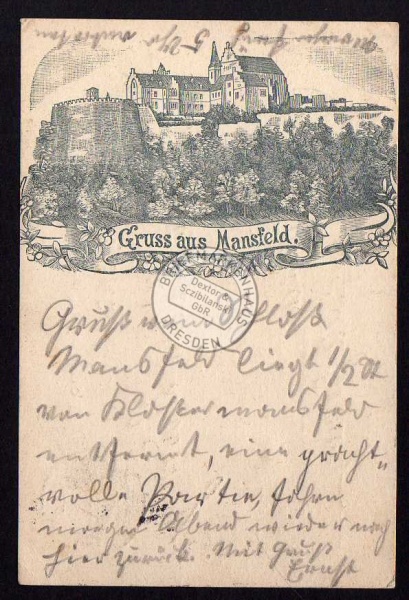 Gruss aus Mansfeld.
BRIEFMARKENHAUS
Dextor &
Sczibilanski
GbR
DRESDEN
Gruß vom Schloß
Mansfeld liegt 1/2 St
von Klostermansfeld
entfernt, eine pracht-
volle Partie, fahre
morgen Abend wieder nach
hier zurück. Mit Gruß
Ernst